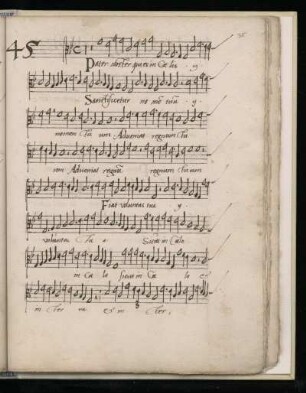 45
Pater noster qui es in Cœ lis ij
Sanctificetur no men tuũ ij
nomen Tu um Adveniat regnum Tu
um Adveniat regnũ regnum Tuum
Fiat voluntas tua ij
voluntas Tu a Sicut in Cœlo
in Cœ lo sicut in Cœ lo et
in Ter ra et in Ter